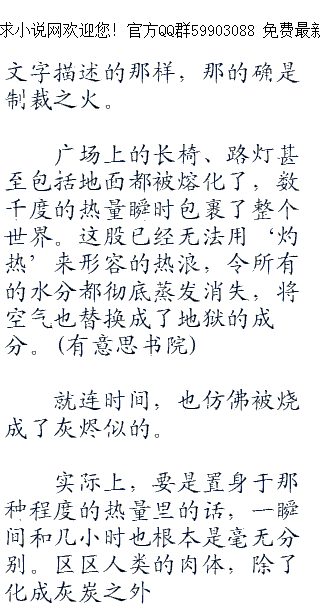 求小说网欢迎您! 官方QQ群59903088 免费最新
文字描述的那样，那的确是
制裁之火。
广场上的长椅、路灯甚
至包括地面都被熔化了，数
千度的热量瞬时包裹了整个
世界。这股已经无法用‘灼
热’来形容的热浪，令所有
的水分都彻底蒸发消失，将
空气也替换成了地狱的成
分。(有意思书院)
就连时间，也仿佛被烧
成了灰烬似的。
实际上，要是置身于那
种程度的热量里的话，一瞬
间和几小时也根本是毫无分
别。区区人类的肉体，除了
化成灰炭之外